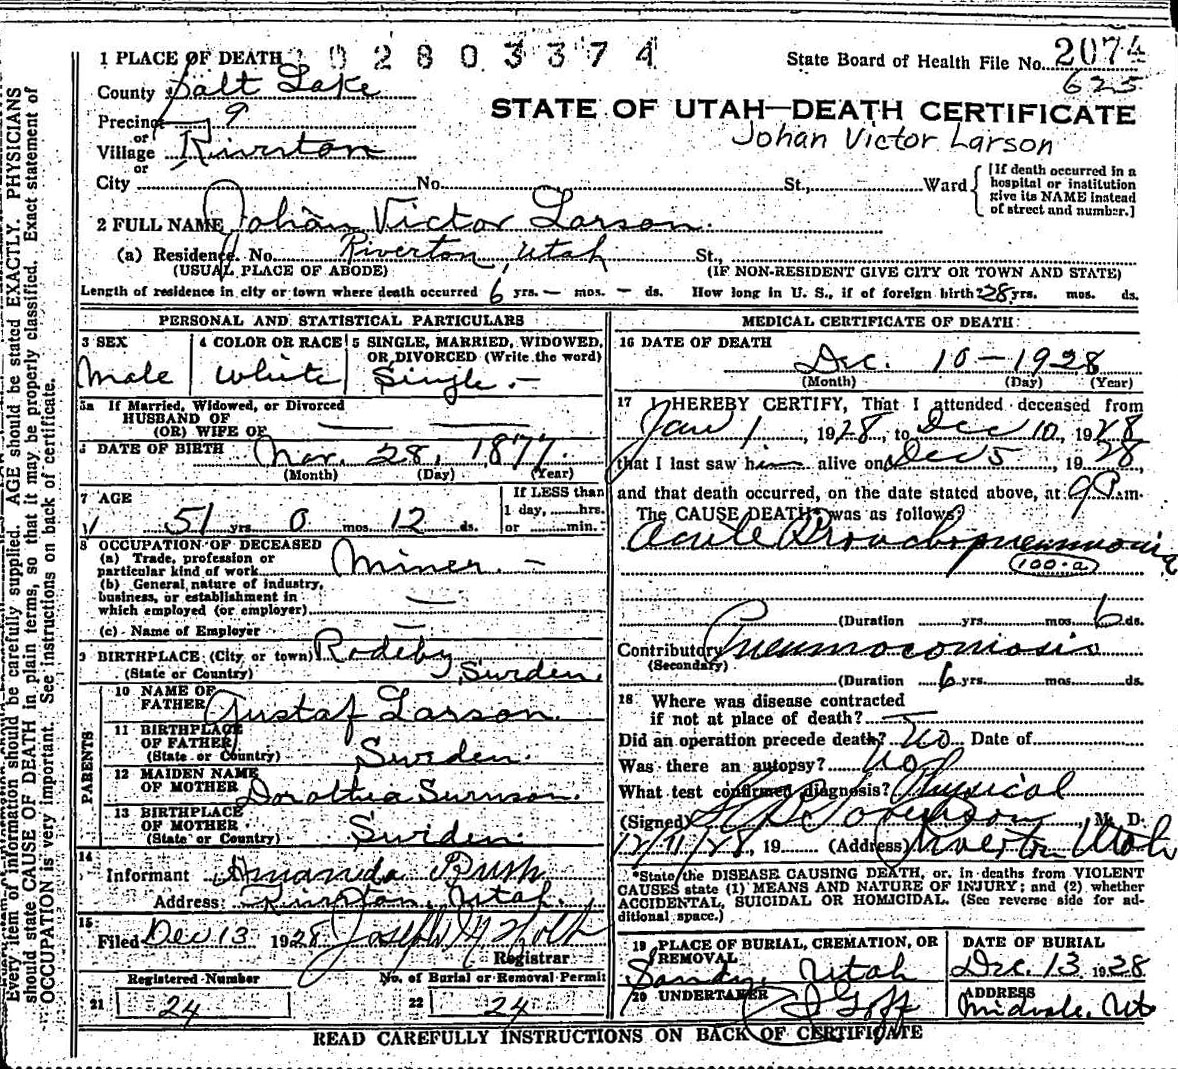 1 PLACE OF DEATH 2 0 2 8 0 3 3 7 4
State Board of Health File No. 2074
625
County Salt Lake
STATE OF UTAH—DEATH CERTIFICATE
Johan Victor Larson
Precinct 9
or
Village Riverton
or
City No. St., Ward
[If death occurred in a hospital or institution give its NAME instead of street and number.]
2 FULL NAME Johan Victor Larson.
(a) Residence. No. Riverton, Utah St.,
(USUAL PLACE OF ABODE) (IF NON-RESIDENT GIVE CITY OR TOWN AND STATE)
Length of residence in city or town where death occurred 6 yrs. — mos. — ds. How long in U. S., if of foreign birth? 28 yrs. mos. ds.
PERSONAL AND STATISTICAL PARTICULARS
3 SEX 4 COLOR OR RACE 5 SINGLE, MARRIED, WIDOWED, OR DIVORCED (Write the word)
Male White Single. —
5a If Married, Widowed, or Divorced
HUSBAND OF
(OR) WIFE OF
DATE OF BIRTH Mar. 28, 1877.
(Month) (Day) (Year)
7 AGE If LESS than
1 day, hrs.
51 yrs. 0 mos. 12 ds. or min.
8 OCCUPATION OF DECEASED
(a) Trade, profession or
particular kind of work Miner. —
(b) General nature of industry,
business, or establishment in
which employed (or employer) —
(c) Name of Employer —
9 BIRTHPLACE (City or town) Rodeby,
(State or Country) Sweden.
PARENTS
10 NAME OF
FATHER Gustaf Larson.
11 BIRTHPLACE
OF FATHER
(State or Country) Sweden.
12 MAIDEN NAME
OF MOTHER Dorothea
13 BIRTHPLACE
OF MOTHER
(State or Country) Sweden
14
Informant Amanda Rush
Address: Riverton, Utah.
15
Filed Dec 13 1928 Joseph
Registrar
Registered Number No. of Burial or Removal Permit
21 24 22 24
MEDICAL CERTIFICATE OF DEATH
16 DATE OF DEATH
Dec. 10 — 1928
(Month) (Day) (Year)
17 I HEREBY CERTIFY, That I attended deceased from
Jan 1, 1928, to Dec 10, 1928
that I last saw him alive on Dec 5, 1928,
and that death occurred, on the date stated above, at 9 P.m.
The CAUSE DEATH* was as follows?
Acute Bronchopneumonia
(100-a)
(Duration yrs. mos. 6 ds.
Contributory Pneumoconiosis
(Secondary)
(Duration 6 yrs. mos. ds.
18 Where was disease contracted
if not at place of death? —
Did an operation precede death? No Date of
Was there an autopsy? No
What test confirmed diagnosis? Physical
(Signed) , M. D.
12/11/28, 19 (Address) Riverton Utah
*State the DISEASE CAUSING DEATH, or, in deaths from VIOLENT
CAUSES state (1) MEANS AND NATURE OF INJURY; and (2) whether
ACCIDENTAL, SUICIDAL OR HOMICIDAL. (See reverse side for additional space.)
19 PLACE OF BURIAL, CREMATION, OR REMOVAL DATE OF BURIAL
Sandy, Utah Dec. 13 1928
20 UNDERTAKER ADDRESS
Goff Midvale, Ut
READ CAREFULLY INSTRUCTIONS ON BACK OF CERTIFICATE
Every item of information should be carefully supplied. AGE should be stated EXACTLY. PHYSICIANS
should state CAUSE OF DEATH in plain terms, so that it may be properly classified. Exact statement of
OCCUPATION is very important. See instructions on back of certificate.